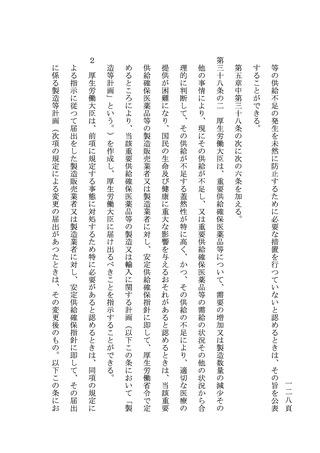 一二八頁
等の供給不足の発生を未然に防止するために必要な措置を行つていないと認めるときは、その旨を公表
することができる。
第五章中第三十八条の次に次の六条を加える。
第三十八条の二　厚生労働大臣は、重要供給確保医薬品等について、需要の増加又は製造数量の減少その
他の事情により、現にその供給が不足し、又は重要供給確保医薬品等の需給の状況その他の状況から合
理的に判断して、その供給が不足する蓋然性が特に高く、かつ、その供給の不足により、適切な医療の
提供が困難になり、国民の生命及び健康に重大な影響を与えるおそれがあると認めるときは、当該重要
供給確保医薬品等の製造販売業者又は製造業者に対し、安定供給確保指針に即して、厚生労働省令で定
めるところにより、当該重要供給確保医薬品等の製造又は輸入に関する計画（以下この条において「製
造等計画」という。）を作成し、厚生労働大臣に届け出るべきことを指示することができる。
２　厚生労働大臣は、前項に規定する事態に対処するため特に必要があると認めるときは、同項の規定に
よる指示に従つて届出をした製造販売業者又は製造業者に対し、安定供給確保指針に即して、その届出
に係る製造等計画（次項の規定による変更の届出があつたときは、その変更後のもの。以下この条にお